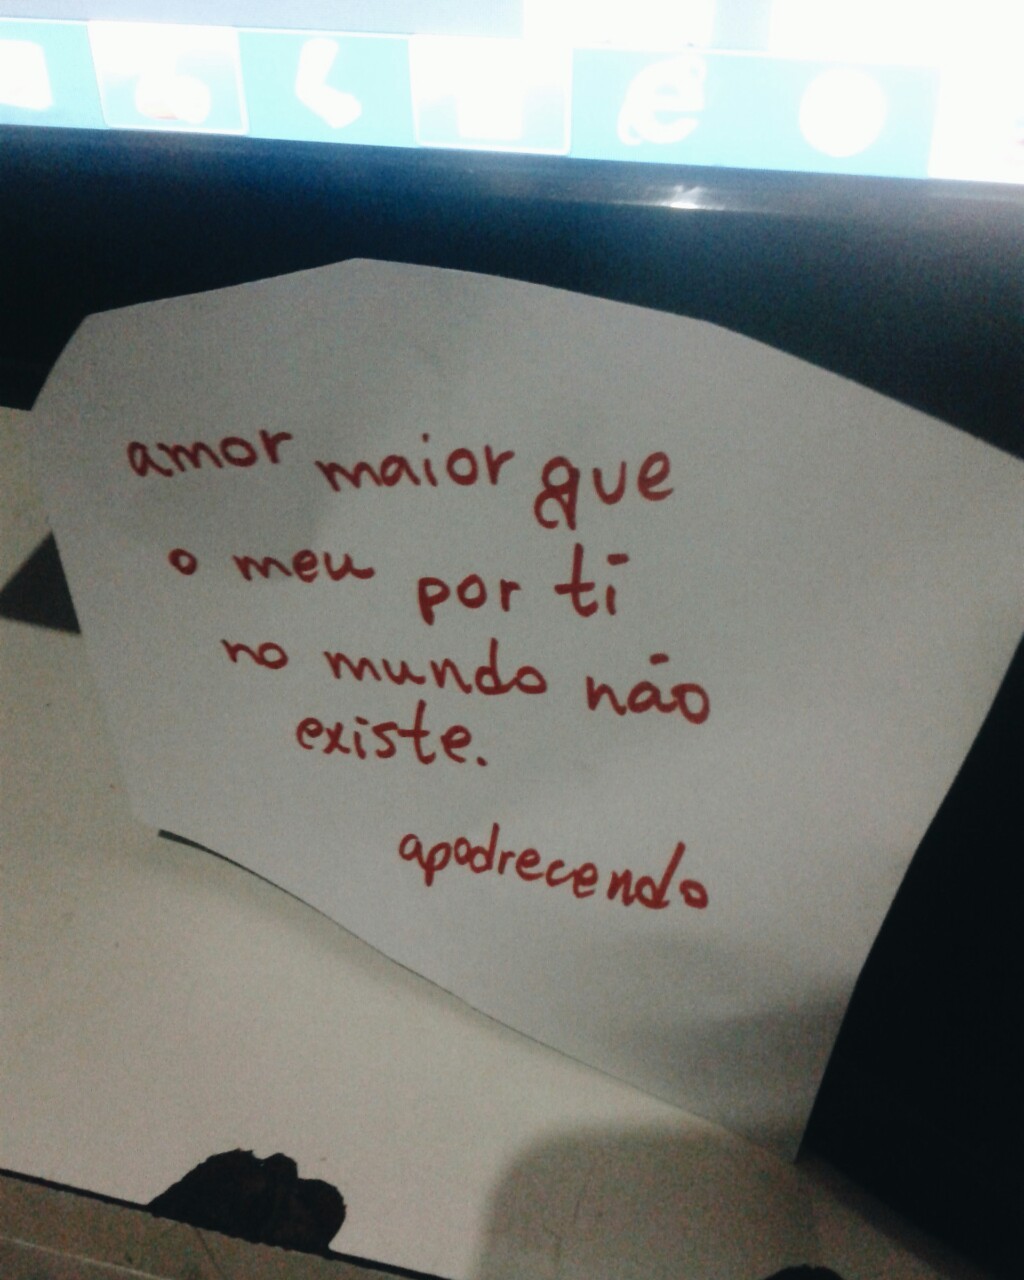 amor maior que
o meu por ti
no mundo não
existe.
apodrecendo